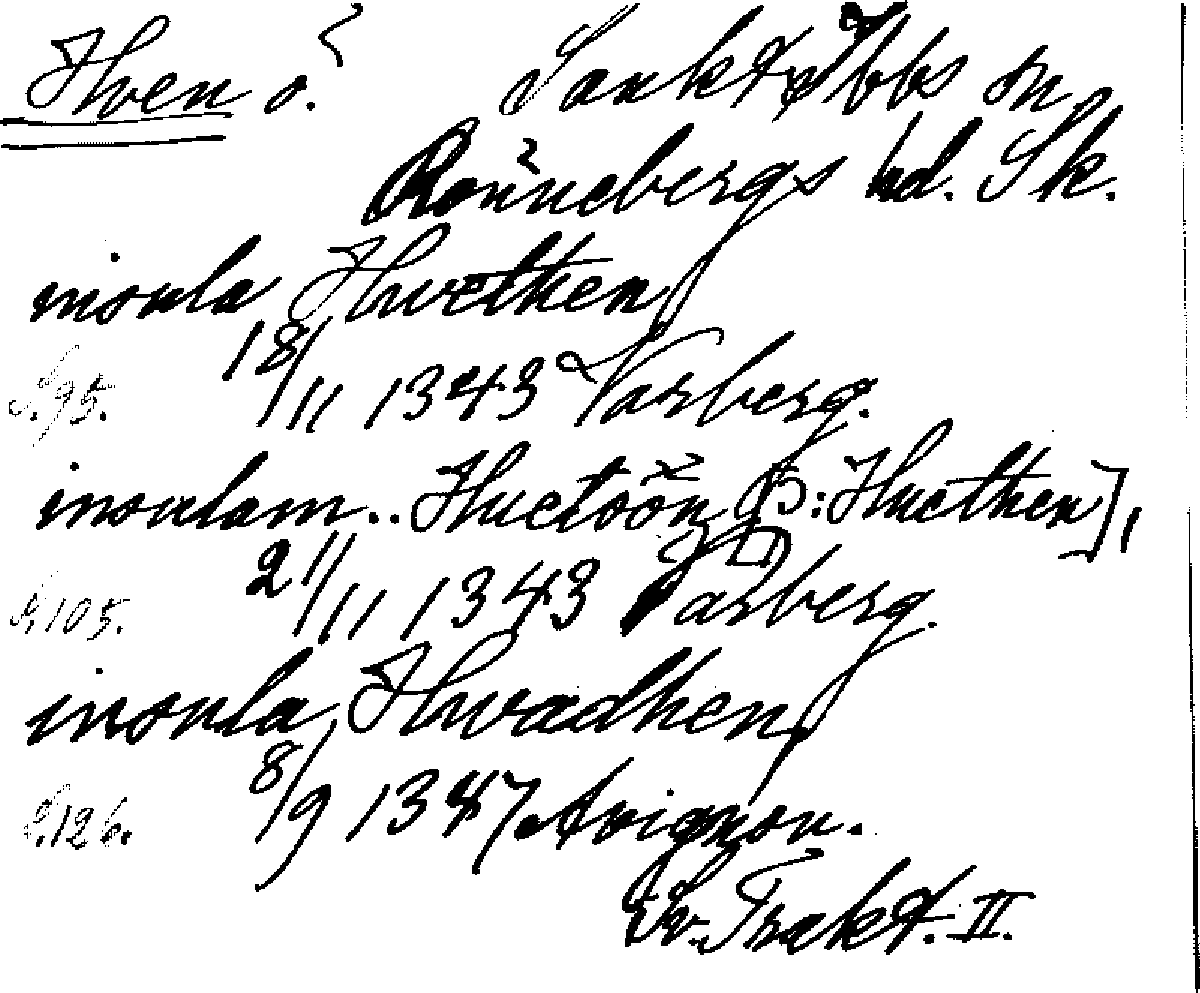 Hven ö. Sankt Ibbs sn,
Rönnebergs hd. Sk.
insula Hwethen,
S. 95. 18/11 1343 Varberg.
insulam .. Huetöön [ɔ: Huethen],
S. 105. 21/11 1343 Varberg.
insula, Hwadhen,
S. 126. 8/9 1347 Avignon.
Sv. Trakt. II.